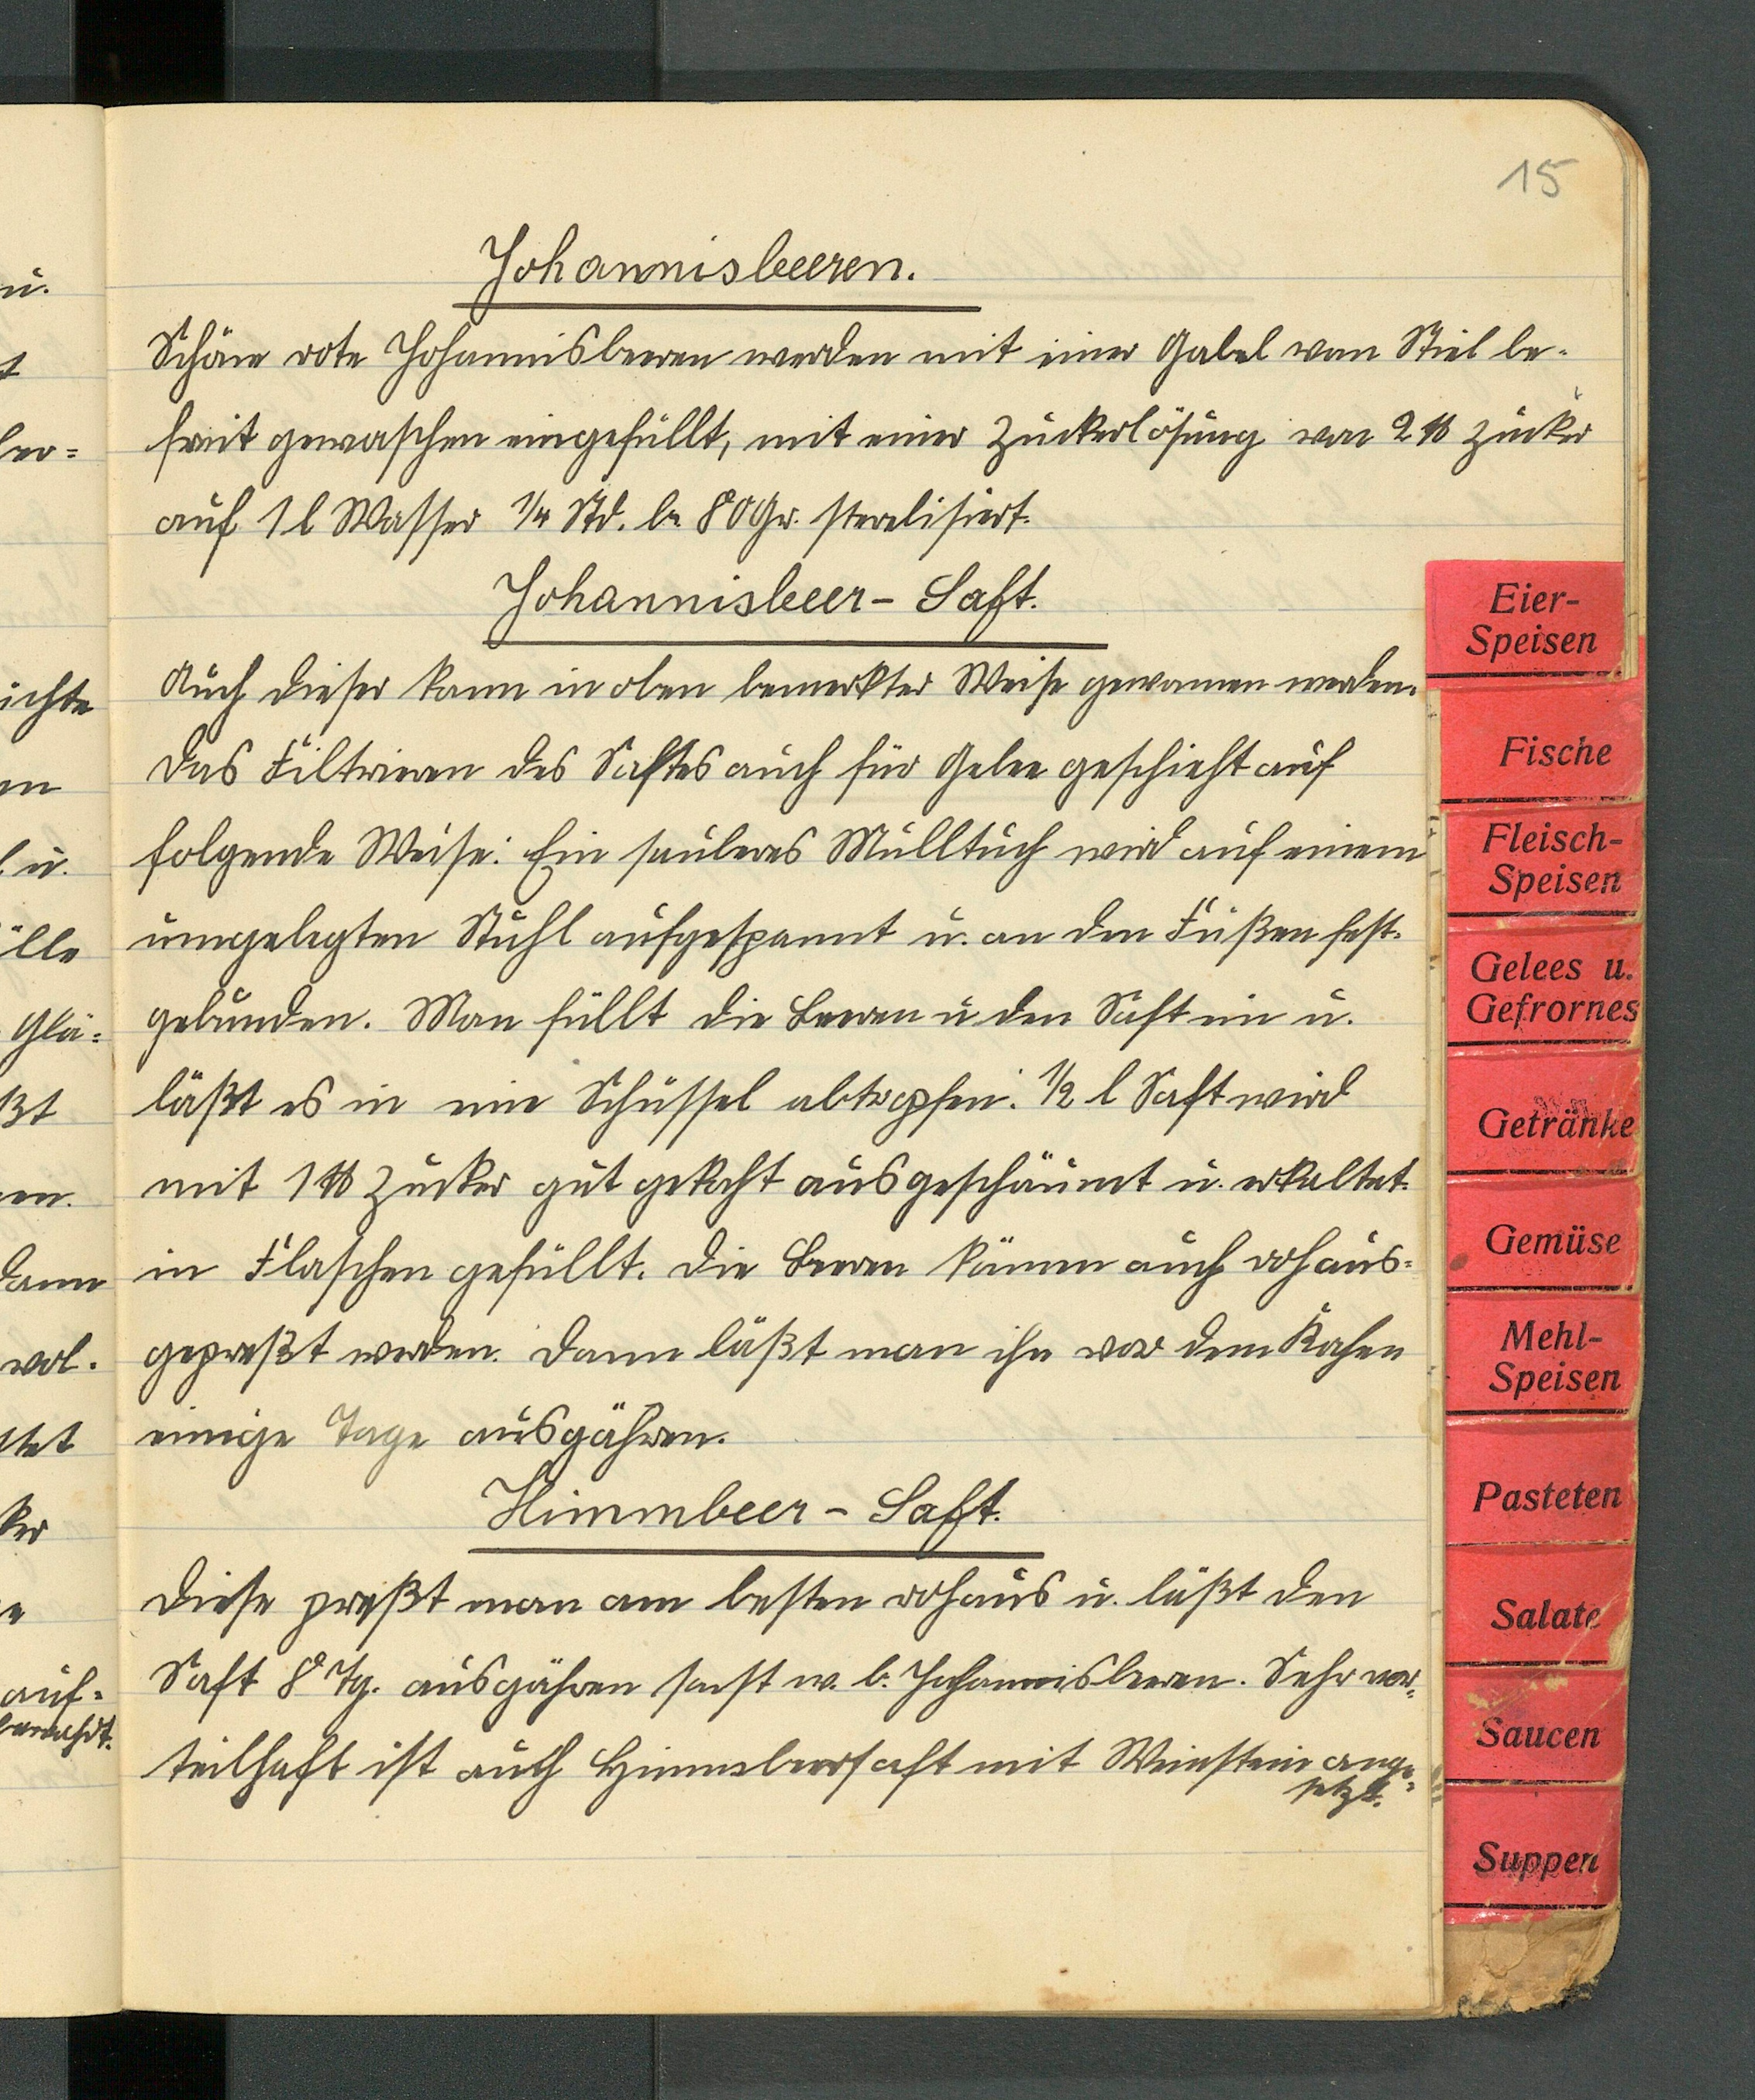 15
Johannisbeeren.
Schöne rote Johannisbeeren werden mit einer Gabel vom Stiel be-
freit gewaschen eingefüllt, mit einer Zuckerlösung von 2 ℔ Zucker
auf 1 l Wasser ¼ Std. b. 80 Gr. sterelisiert.
Johannisbeer- Saft.
Auch dieser kann in oben bemerkter Weise gewonnen werden.
Das Filtrieren des Saftes auch für Gelee geschieht auf
folgende Weise: Ein sauberes Mulltuch wird auf einem
umgelegten Stuhl aufgespannt u. an den Füßen fest-
gebunden. Man füllt die Beeren u. den Saft ein u.
läßt es in eine Schüssel abtropfen. ½ l Saft wird
mit 1 ℔ Zucker gut gekocht ausgeschäumt u. erkaltet
in Flaschen gefüllt. Die Beeren können auch roh aus-
gepreßt werden. Dann läßt man ihn vor dem Kochen
einige Tage ausgähren.
Himmbeer - Saft.
Diese preßt man am besten roh aus u. läßt den
Saft 8 Tg. ausgähren sonst w. b. Johannisbeeren. Sehr vor-
teilhaft ist auch Himmbeersaft mit Weinstein ange-
setzt.
u.
t
ber=
ichte
en
l u.
ülle
Glä=
ßt
en.
dann
vol.
ttet
ker
e
auf=
bewahrt.
Eier-
Speisen
Fische
Fleisch-
Speisen
Gelees u.
Gefrornes
Getränke
Gemüse
Mehl-
Speisen
Pasteten
Salate
Saucen
Suppen